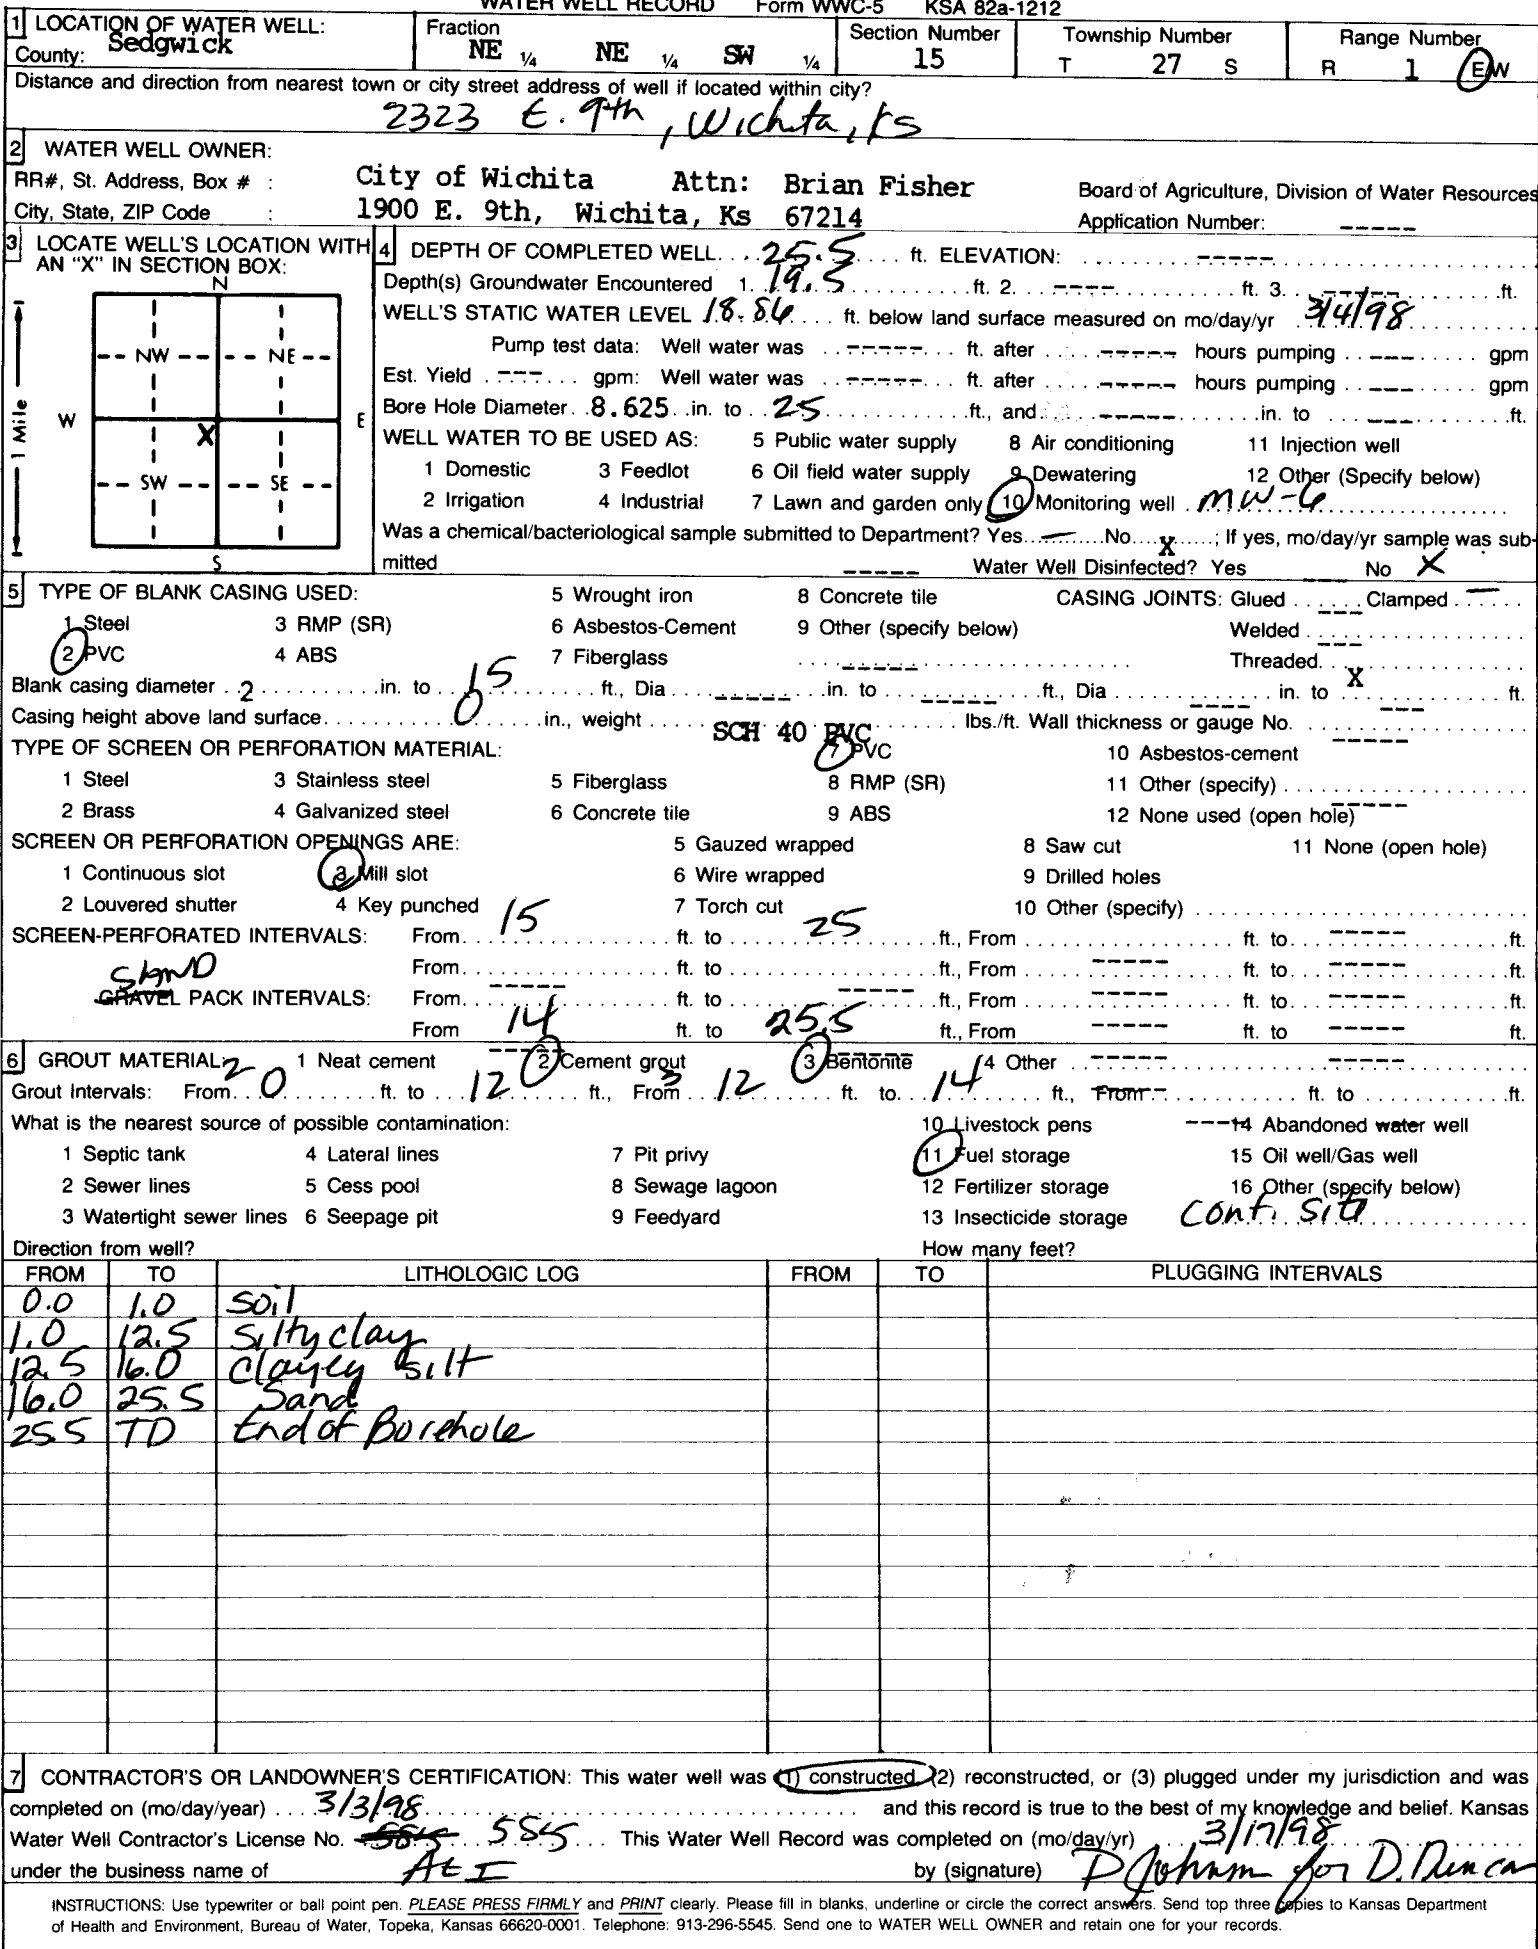 WATER WELL RECORD Form WWC-5 KSA 82a-1212
1 LOCATION OF WATER WELL: Fraction Section Number Township Number Range Number
County: Sedgwick NE 1/4 NE 1/4 SW 1/4 15 T 27 S R 1 E/W
Distance and direction from nearest town or city street address of well if located within city?
2323 E. 9th, Wichita, Ks
2 WATER WELL OWNER:
RR#, St. Address, Box # : City of Wichita Attn: Brian Fisher Board of Agriculture, Division of Water Resources
City, State, ZIP Code : 1900 E. 9th, Wichita, Ks 67214 Application Number: -----
3 LOCATE WELL'S LOCATION WITH AN "X" IN SECTION BOX:
N
NW NE
W X E
SW SE
S
1 Mile
4 DEPTH OF COMPLETED WELL 25.5 ft. ELEVATION: -----
Depth(s) Groundwater Encountered 1. 19.5 ft. 2. ---- ft. 3. ----- ft.
WELL'S STATIC WATER LEVEL 18.86 ft. below land surface measured on mo/day/yr 3/4/98
Pump test data: Well water was ----- ft. after ----- hours pumping --- gpm
Est. Yield --- gpm: Well water was ----- ft. after ----- hours pumping --- gpm
Bore Hole Diameter 8.625 in. to 25 ft., and ----- in. to --- ft.
WELL WATER TO BE USED AS: 5 Public water supply 8 Air conditioning 11 Injection well
1 Domestic 3 Feedlot 6 Oil field water supply 9 Dewatering 12 Other (Specify below)
2 Irrigation 4 Industrial 7 Lawn and garden only 10 Monitoring well MW-6
Was a chemical/bacteriological sample submitted to Department? Yes No X ; If yes, mo/day/yr sample was sub-
mitted ----- Water Well Disinfected? Yes No X
5 TYPE OF BLANK CASING USED: 5 Wrought iron 8 Concrete tile CASING JOINTS: Glued --- Clamped
1 Steel 3 RMP (SR) 6 Asbestos-Cement 9 Other (specify below) Welded ---
2 PVC 4 ABS 7 Fiberglass ----- Threaded X
Blank casing diameter 2 in. to 15 ft., Dia ----- in. to ----- ft., Dia ---- in. to --- ft.
Casing height above land surface 0 in., weight SCH 40 PVC lbs./ft. Wall thickness or gauge No. -----
TYPE OF SCREEN OR PERFORATION MATERIAL: 7 PVC 10 Asbestos-cement
1 Steel 3 Stainless steel 5 Fiberglass 8 RMP (SR) 11 Other (specify) -----
2 Brass 4 Galvanized steel 6 Concrete tile 9 ABS 12 None used (open hole)
SCREEN OR PERFORATION OPENINGS ARE: 5 Gauzed wrapped 8 Saw cut 11 None (open hole)
1 Continuous slot 3 Mill slot 6 Wire wrapped 9 Drilled holes
2 Louvered shutter 4 Key punched 7 Torch cut 10 Other (specify)
SCREEN-PERFORATED INTERVALS: From 15 ft. to 25 ft., From ft. to ----- ft.
From ----- ft. to ----- ft., From ----- ft. to ----- ft.
SAND
GRAVEL PACK INTERVALS: From 14 ft. to 25.5 ft., From ----- ft. to ----- ft.
From ----- ft. to ----- ft., From ----- ft. to ----- ft.
6 GROUT MATERIAL: 1 Neat cement 2 Cement grout 3 Bentonite 4 Other -----
Grout Intervals: 2 From 0 ft. to 12 ft., From 3 12 ft. to 14 ft., From ft. to ft.
What is the nearest source of possible contamination: 10 Livestock pens 14 Abandoned water well
1 Septic tank 4 Lateral lines 7 Pit privy 11 Fuel storage 15 Oil well/Gas well
2 Sewer lines 5 Cess pool 8 Sewage lagoon 12 Fertilizer storage 16 Other (specify below)
3 Watertight sewer lines 6 Seepage pit 9 Feedyard 13 Insecticide storage Cont. Site
Direction from well? How many feet?
FROM TO LITHOLOGIC LOG FROM TO PLUGGING INTERVALS
0.0 1.0 Soil
1.0 12.5 Silty clay
12.5 16.0 Clayey silt
16.0 25.5 Sand
25.5 TD End of Borehole
7 CONTRACTOR'S OR LANDOWNER'S CERTIFICATION: This water well was (1) constructed, (2) reconstructed, or (3) plugged under my jurisdiction and was
completed on (mo/day/year) 3/3/98 and this record is true to the best of my knowledge and belief. Kansas
Water Well Contractor's License No. 585 This Water Well Record was completed on (mo/day/yr) 3/17/98
under the business name of AEI by (signature) P Johnson for D. Duncan
INSTRUCTIONS: Use typewriter or ball point pen. PLEASE PRESS FIRMLY and PRINT clearly. Please fill in blanks, underline or circle the correct answers. Send top three copies to Kansas Department
of Health and Environment, Bureau of Water, Topeka, Kansas 66620-0001. Telephone: 913-296-5545. Send one to WATER WELL OWNER and retain one for your records.